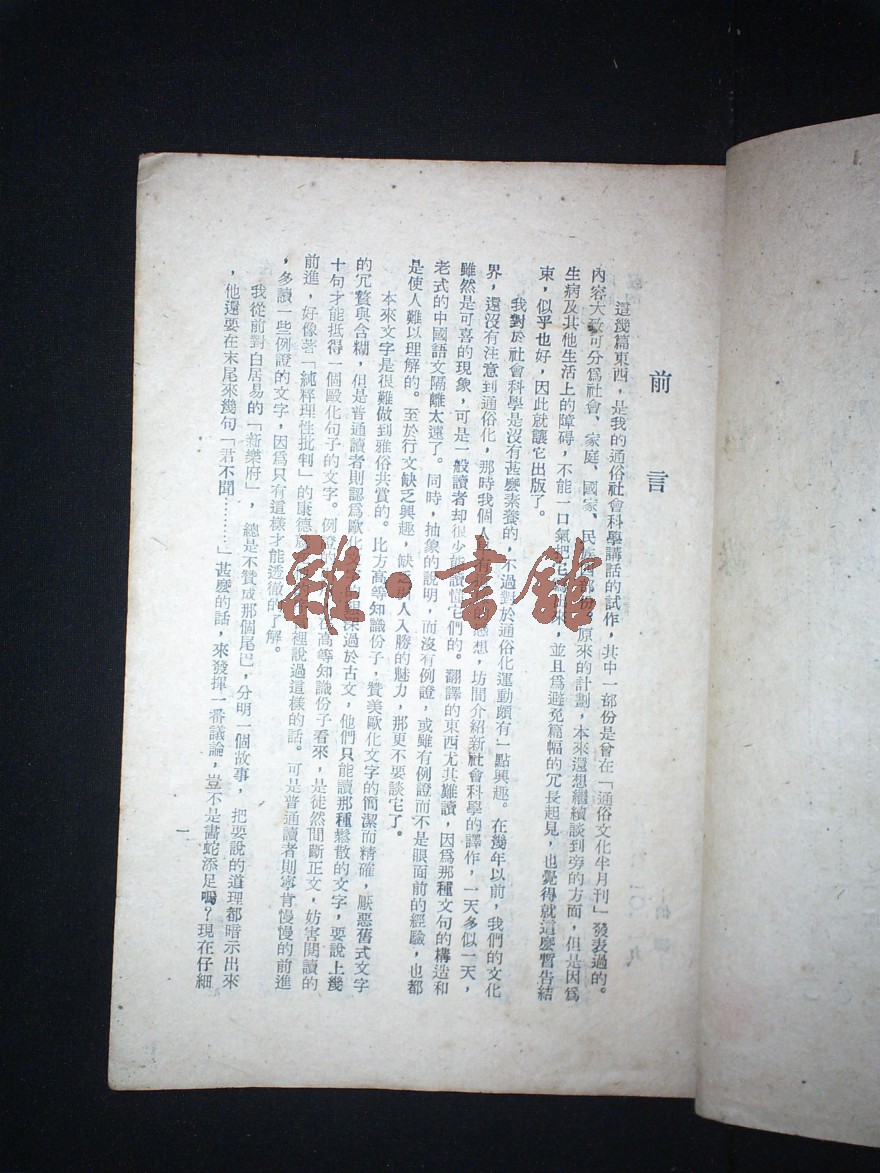 前言
這幾篇東西，是我的通俗社會科學講話的試作，其中一部份是曾在「通俗文化半月刊」發表過的。
內容大致可分爲社會、家庭、國家、民族四部份。原來的計劃，本來還想繼續談到旁的方面，但是因爲
生病及其他生活上的障碍，不能一口氣把來，並且爲避免篇幅的冗長起見，也覺得就這麼暫告結
束，似乎也好，因此就讓它出版了。
我對於社會科學是沒有甚麼素養的，不過對於通俗化運動頗有一點興趣。在幾年以前，我們的文化
界，還沒有注意到通俗化，那時我個人有感想，坊間介紹新社會科學的譯作，一天多似一天，
雖然是可喜的現象，可是一般讀者却很少能讀懂它們的。翻譯的東西尤其難讀，因爲那種文句的構造和
老式的中國語文隔離太遠了。同時，抽象的說明，而沒有例證，或雖有例證而不是眼面前的經驗，也都
是使人難以理解的。至於行文缺乏興趣，缺乏引人入勝的魅力，那更不要談它了。
本來文字是很難做到雅俗共賞的。比方高等知識份子，贊美歐化文字的簡潔而精確，厭惡舊式文字
的冗贅與含糊，但是普通讀者則認爲歐化文字的艱深過於古文，他們只能讀那種鬆散的文字，要說上幾
十句才能抵得一個歐化句子的文字。例證的在高等知識份子看來，是徒然間斷正文，妨害閱讀的
前進，好像著「純粹理性批判」的康德裡說過這樣的話。可是普通讀者則寧肯慢慢的前進
，多讀一些例證的文字，因爲只有這樣才能透徹的了解。
我從前對白居易的「新樂府」，總是不贊成那個尾巴，分明一個故事，把要說的道理都暗示出來
，他還要在末尾來幾句「君不聞………」甚麼的話，來發揮一番議論，豈不是畫蛇添足嗎？現在仔細
一
雜·書館